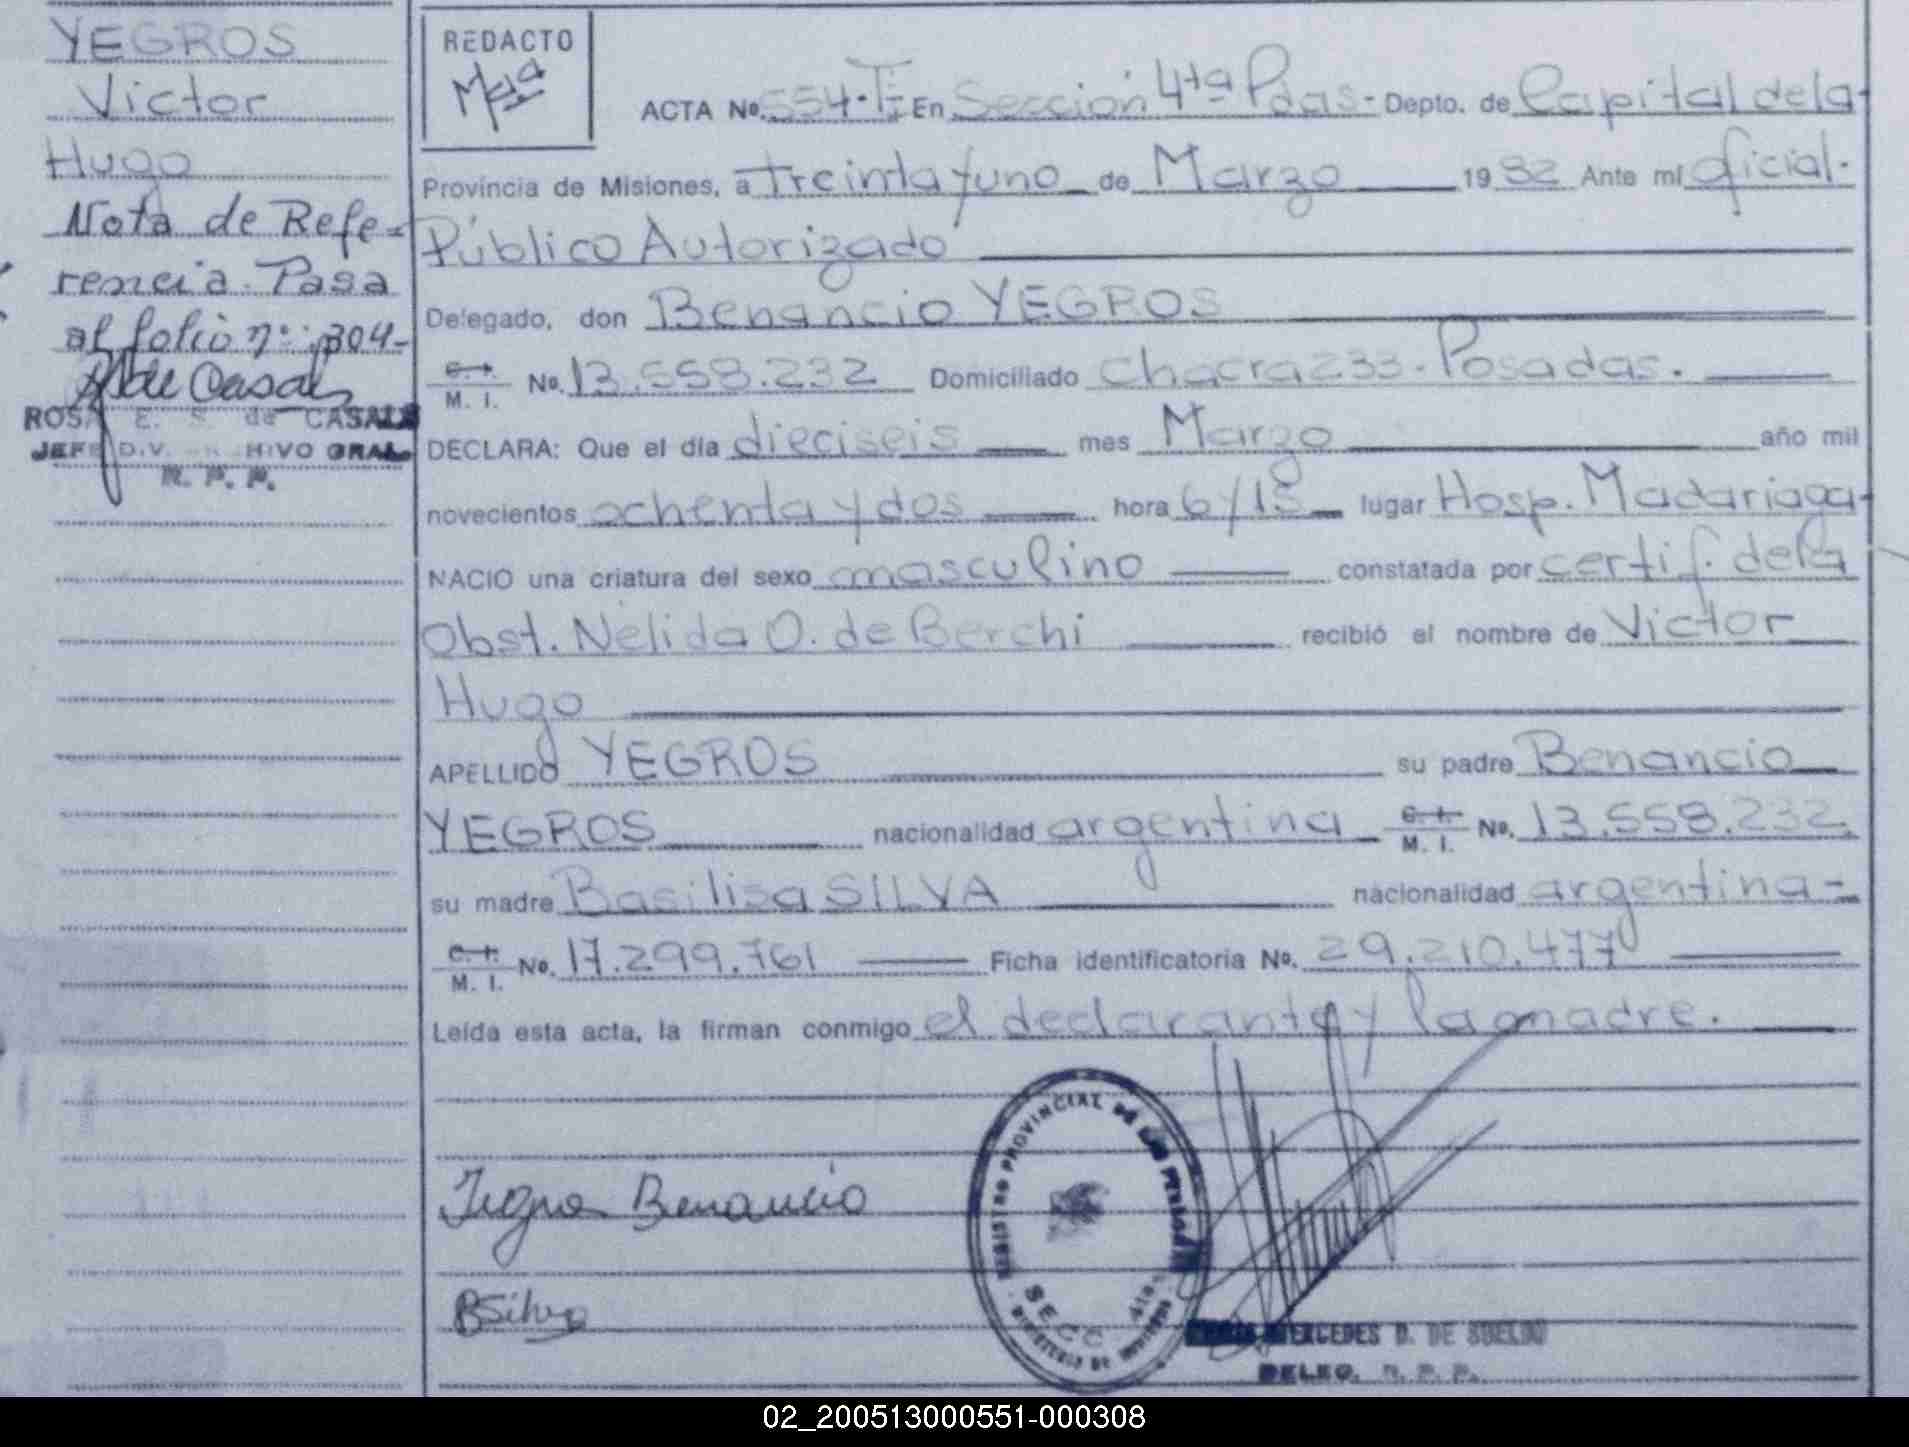 YEGROS
Victor
Hugo
Nota de Refe-
rencia. Pasa
al folio nº: 304-
R de Casals
ROSA E. S. de CASALS
JEFE DIV. ARCHIVO GRAL.
R. P. P.
REDACTO
ACTA No. 554·T·I- En Sección 4ta Pdas- Depto. de Capital de la-
Provincia de Misiones, a treinta y uno de Marzo 1982 Ante mí Oficial-
Público Autorizado
Delegado, don Benancio YEGROS
C. I.
M. I. No. 13.558.232 Domiciliado Chacra 233-Posadas.
DECLARA: Que el día dieciseis mes Marzo año mil
novecientos ochenta y dos hora 6/15 lugar Hosp. Madariaga-
NACIO una criatura del sexo masculino constatada por certif. de la
Obst. Nélida O. de Berchi recibió el nombre de Victor
Hugo
APELLIDO YEGROS su padre Benancio
YEGROS nacionalidad argentina C. I.
M. I. No. 13.558.232.
su madre Basilisa SILVA nacionalidad argentina-
C. I.
M. I. No. 17.299.761 Ficha identificatoria No. 29.210.477
Leída esta acta, la firman conmigo el declarante y la madre.
REGISTRO PROVINCIAL DE LAS PERSONAS
SECC 4ta
MINISTERIO DE
Benancio
BSilva
MERCEDES D. DE SUELDO
DELEG. R. P. P.
02_200513000551-000308